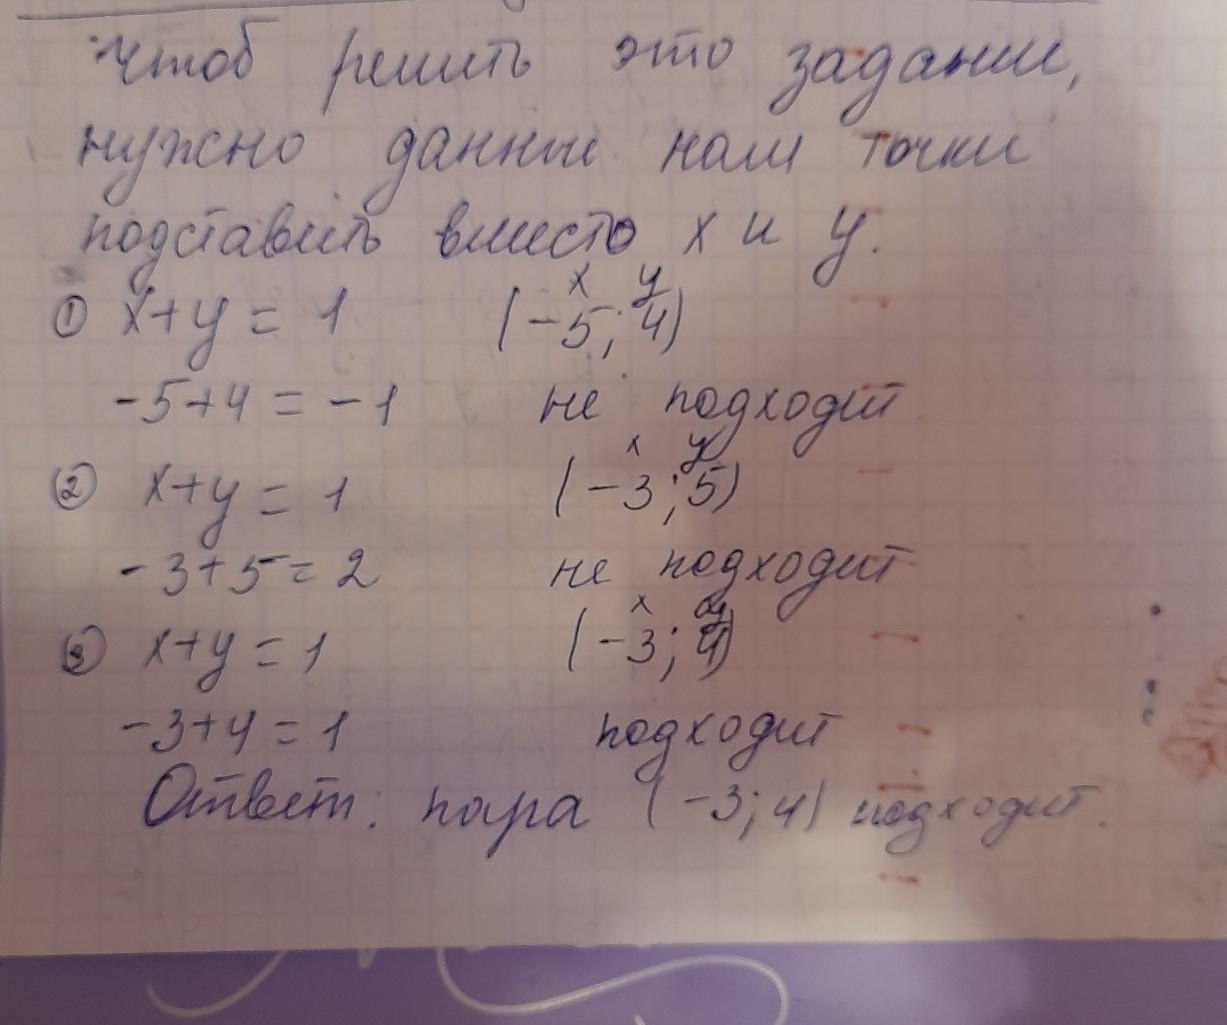 Чтоб решить это задание,
нужно данные нам точки
подставить вместо x и y.
x y
① x+y = 1 (-5; 4)
-5+4 = -1 не подходит
x y
② x+y = 1 (-3; 5)
-3+5 = 2 не подходит
x y
③ x+y = 1 (-3; 4)
-3+4 = 1 подходит
Ответ: пара (-3; 4) подходит.